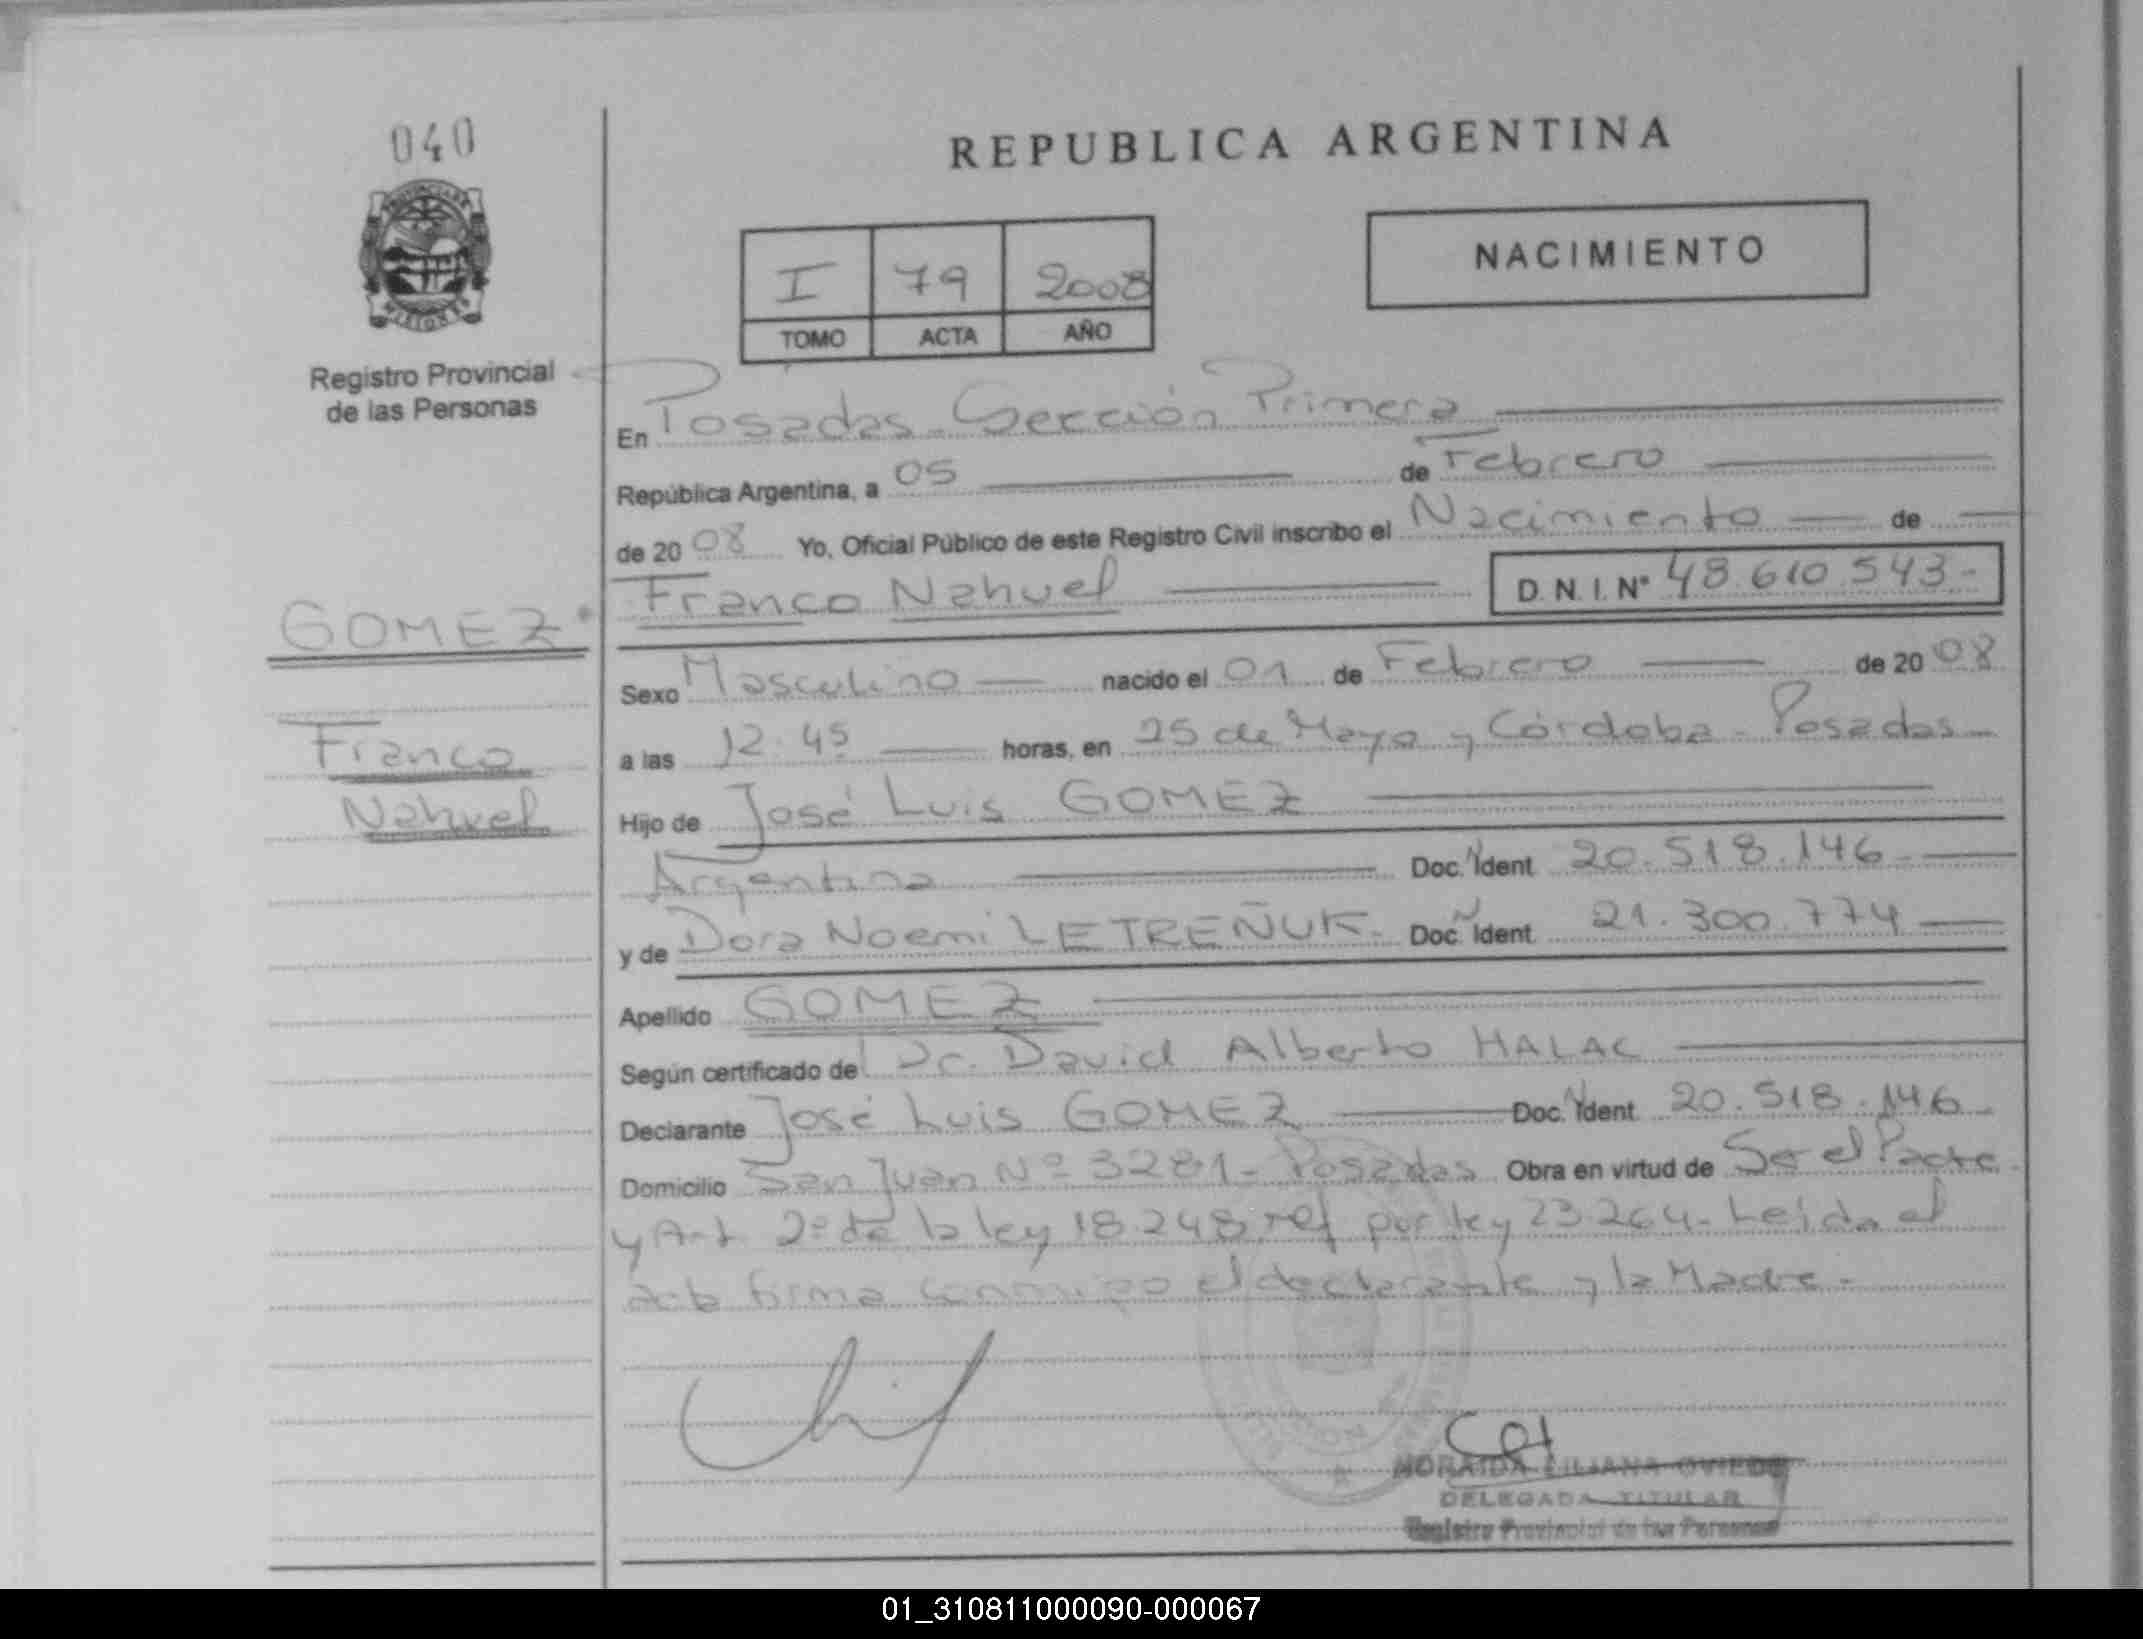 040
REPUBLICA ARGENTINA
PROVINCIA DE
MISIONES
Registro Provincial
de las Personas
I 79 2008
TOMO ACTA AÑO
NACIMIENTO
En Posadas - Sección Primera
República Argentina, a 05 de Febrero
de 2008 Yo, Oficial Público de este Registro Civil inscribo el Nacimiento de
Franco Nahuel D.N.I. Nº 48.610.543-
GOMEZ
Franco
Nahuel
Sexo Masculino nacido el 01 de Febrero de 2008
a las 12.45 horas, en 25 de Mayo y Córdoba - Posadas-
Hijo de José Luis GOMEZ
Argentina Doc. Ident. 20.518.146
y de Dora Noemi LETREÑUK. Doc. Ident. 21.300.774
Apellido GOMEZ
Según certificado del Dr. David Alberto HALAC
Declarante José Luis GOMEZ Doc. Ident. 20.518.146
Domicilio San Juan Nº 3281 - Posadas Obra en virtud de Ser el Padre
y Art 2º de la ley 18.248 ref por ley 23.264- Leída el
acta firma conmigo el declarante y la Madre-
NORAIDA LILIANA OVIEDO
DELEGADA TITULAR
Registro Provincial de las Personas
01_310811000090-000067